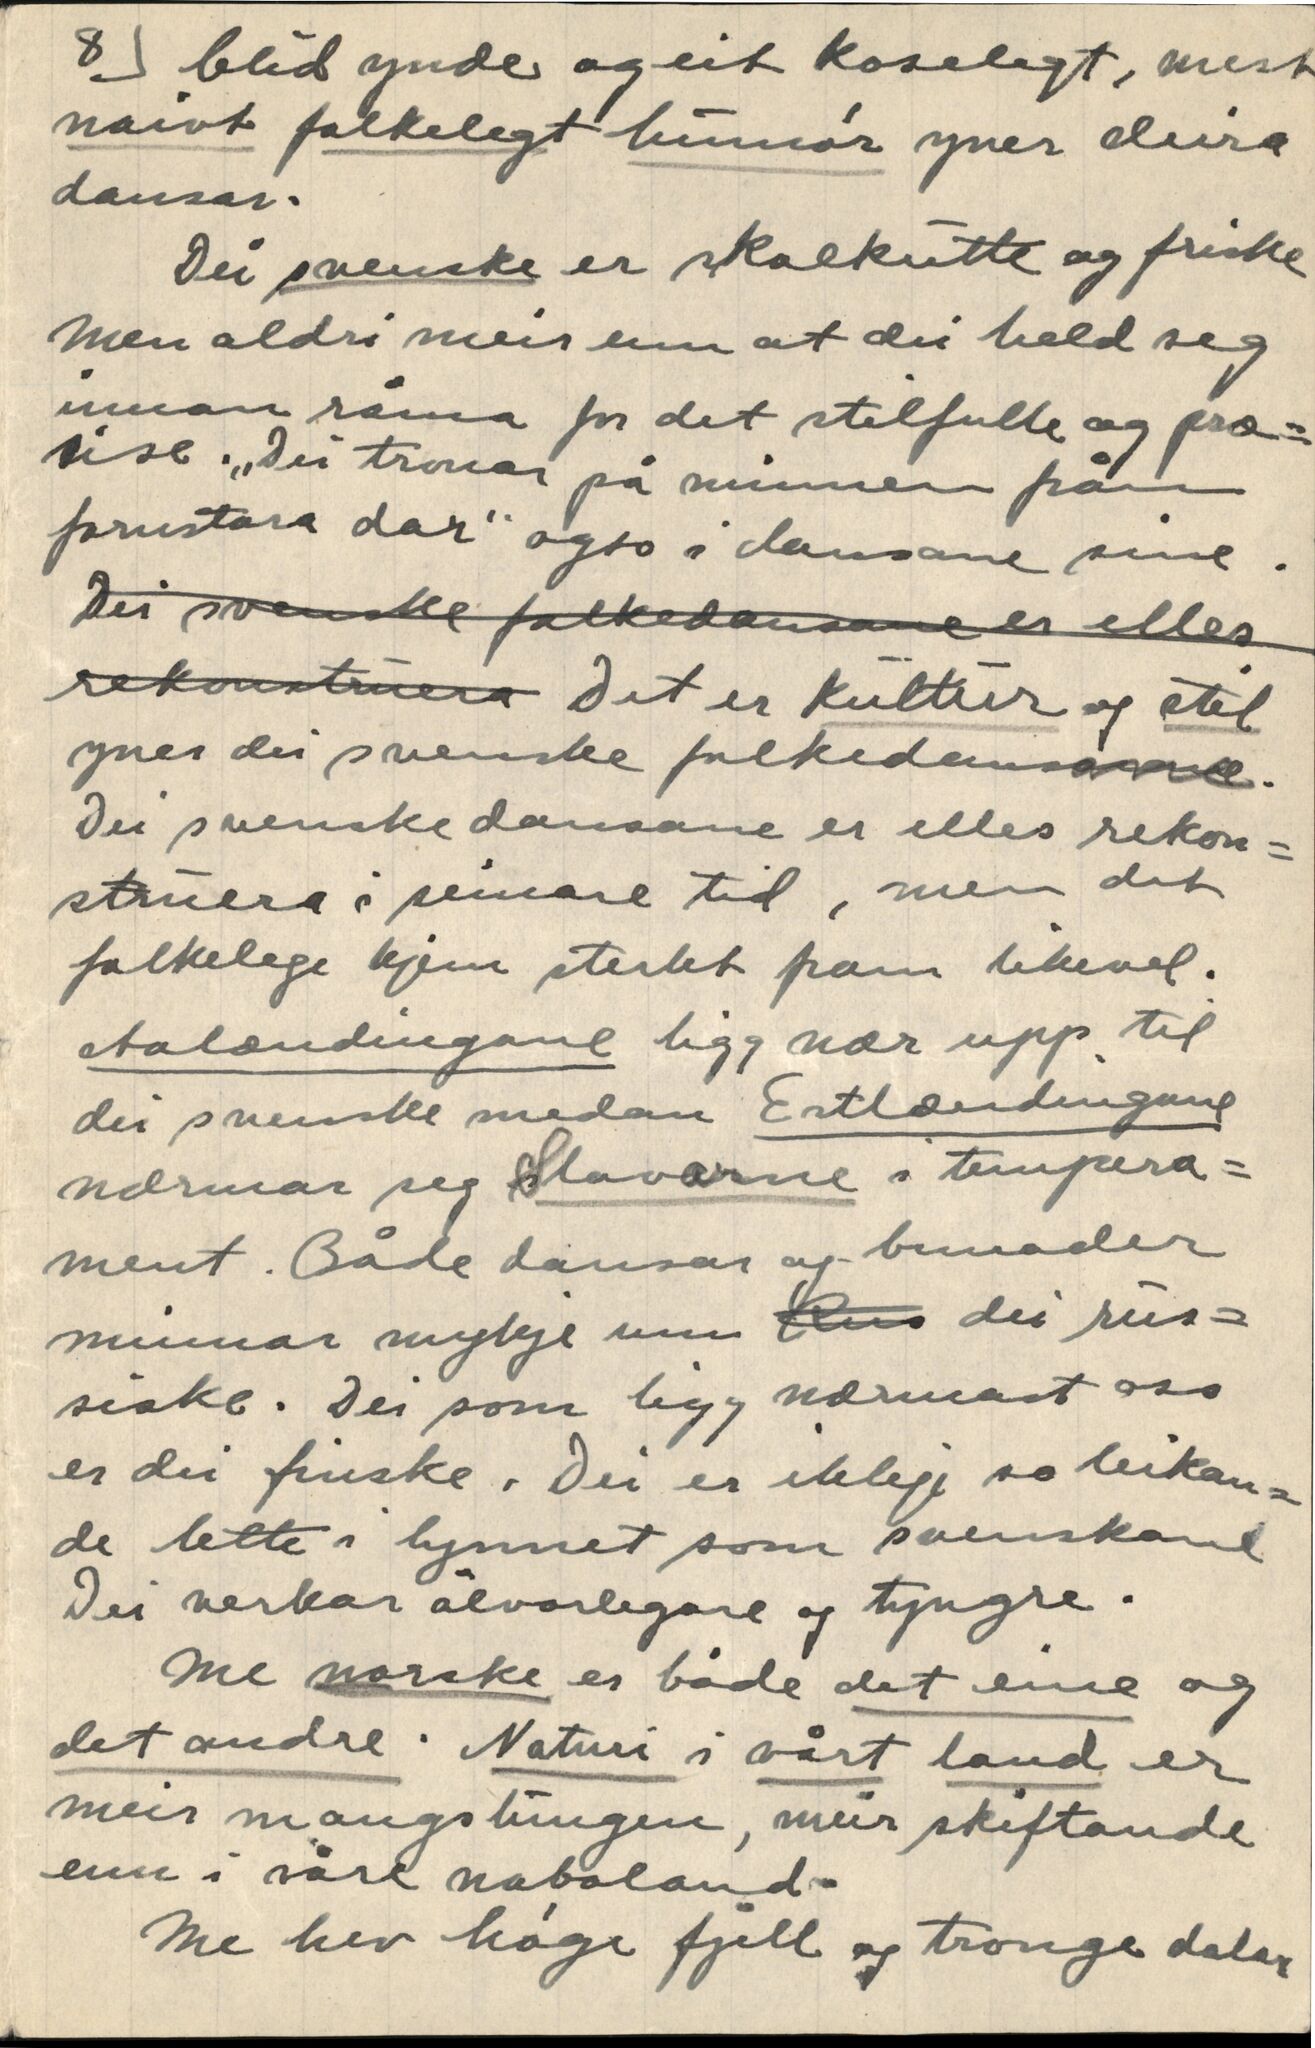 8) blid ynde og eit koselegt, mest
naivt folkelegt humór yver deira
dansar.
Dei svenske er skalkutte og friske
Men aldri meir enn at dei held seg
innan råma for det stilfulle og præ=
sise. „Dei tronar på minnen från
fornstora dar" ogso i dansane sine.
Dei svenske folkedansane er elles
rekonstruera Det er kultur og stil
yver dei svenske folkedansane.
Dei svenske dansane er elles rekon=
struera i seinare tid, men det
folkelege kjem sterkt fram likevel.
Aalændingane ligg nær upp til
dei svenske medan Estlændingane
nærmar seg Slavarne i tempera=
ment. Både dansar og bunader
minnar mykje um Rus dei rus=
siske. Dei som ligg nærmast oss
er dei finske. Dei er ikkje so leikan=
de lette i lynnet som svenskane
Dei verkar ålvorlegare og tyngre.
Me norske er både det eine og
det andre. Naturi i vårt land er
meir mangslungen, meir skiftande
enn i våre naboland.
Me hev høge fjell og tronge dalar